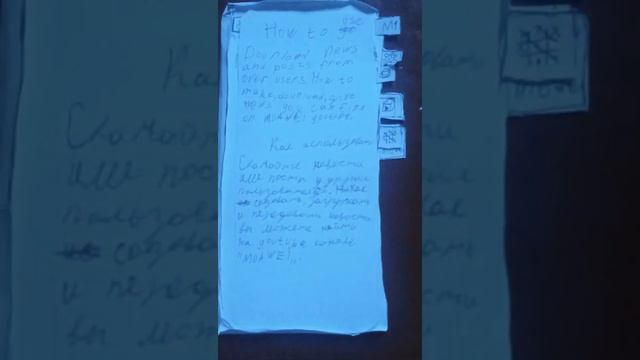 How to use
Downloat news
and posts from
over users. How to
make, download, give
news you can find
on MOAWE! youtube
Как использовать
Скачайте новости
или посты у других
пользователей. Но как
создовать, загружать
и передовать новости
вы можете найти
на youtube канале
"MOAWE!„.
M1